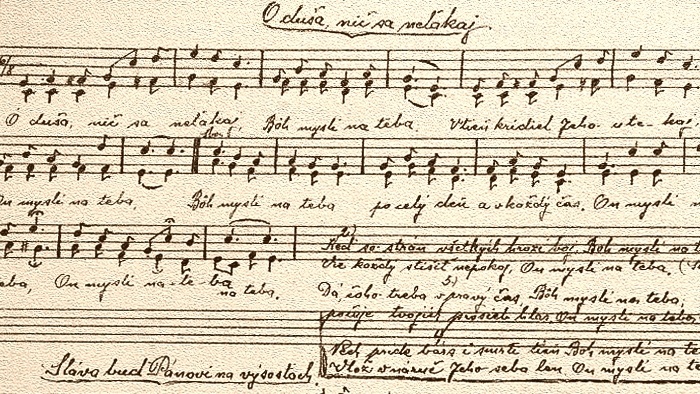 O duša, nič sa neľakaj.
O duša, nič sa neľakaj, Böh myslí na teba. V tieň krídiel Jeho ute-kaj,
On myslí na teba, Böh myslí na teba po celý deň a v každý čas. On myslí n
teba, On myslí na te-ba
na teba.
2)
Keď so strán všetkých hrozí boj, Böh myslí na t
Vie každý stíšiť nepokoj, On myslí na teba.
3)
Dá čoho treba v pravý čas, Böh myslí na teba,
počuje tvojich prosieb hlas, On myslí na teba.
4)
Nech príde búra i smrti tieň Böh myslí na te
Vlož v náruč Jeho seba len. On myslí na te
Sláva buď Pánovi na výsostach.